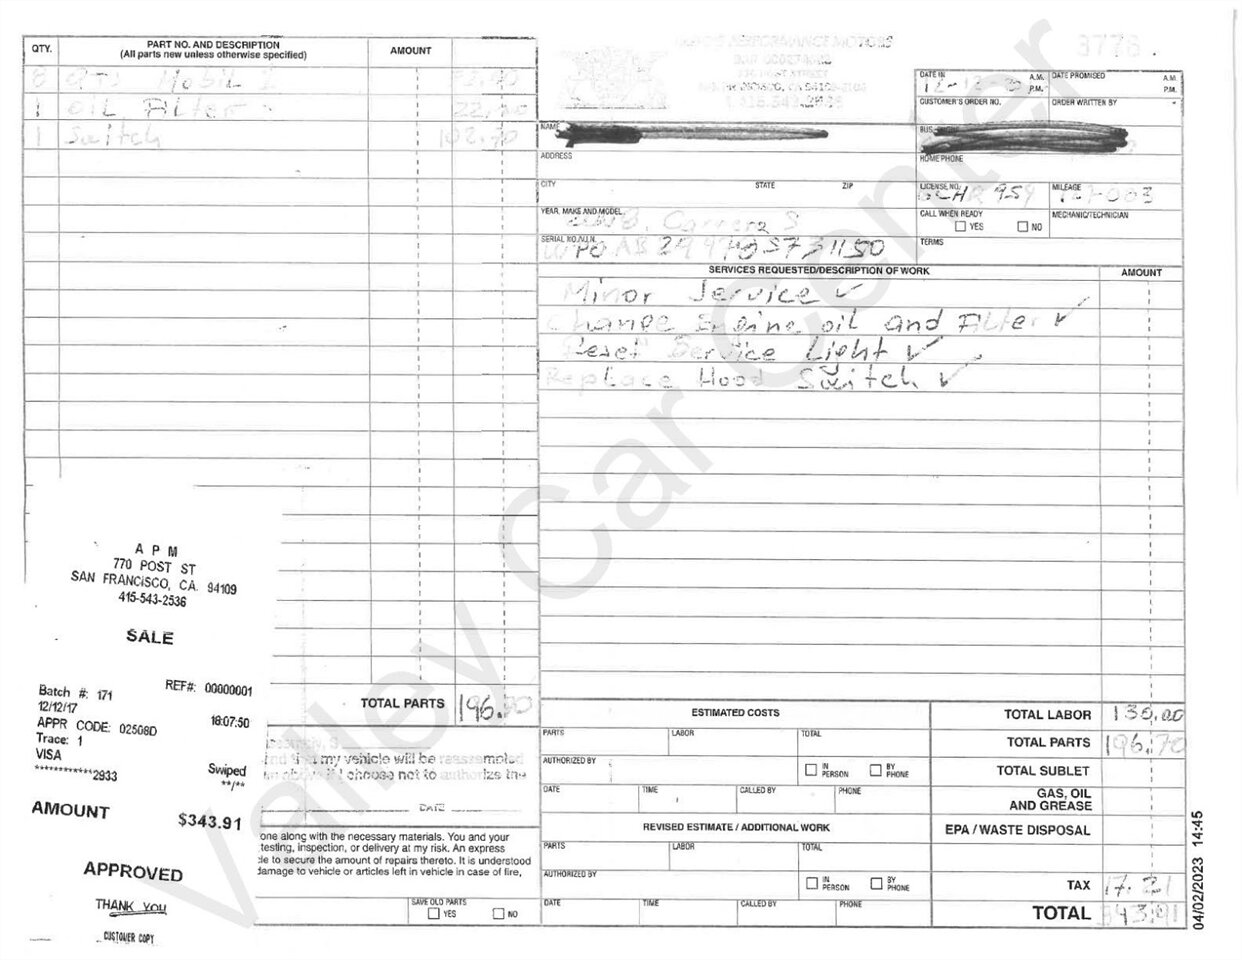 QTY.
PART NO. AND DESCRIPTION
(All parts new unless otherwise specified)
AMOUNT
8 QTS Mobil 1
1 OIL FILTER 22,
1 Switch 102.70
TOTAL PARTS 196.70
3776
DATE IN 12-12- A.M. P.M.
DATE PROMISED A.M. P.M.
CUSTOMER'S ORDER NO.
ORDER WRITTEN BY
NAME
BUS. PHONE
ADDRESS
HOME PHONE
CITY STATE ZIP
LICENSE NO.
MILEAGE
YEAR, MAKE AND MODEL Carrera S
CALL WHEN READY YES NO
MECHANIC/TECHNICIAN
SERIAL NO./V.I.N.
TERMS
SERVICES REQUESTED/DESCRIPTION OF WORK
AMOUNT
Minor Service ✓
Change Engine oil and FILTER ✓
Reset Service Light ✓
Replace Hood Switch ✓
A P M
770 POST ST
SAN FRANCISCO, CA. 94109
415-543-2536
SALE
REF#: 00000001
Batch #: 171
12/12/17 18:07:50
APPR CODE: 02508D
Trace: 1
VISA Swiped
************2933 **/**
AMOUNT $343.91
APPROVED
THANK YOU
CUSTOMER COPY
my vehicle will be reassembled
if I choose not to authorize the
DATE
one along with the necessary materials. You and your
testing, inspection, or delivery at my risk. An express
to secure the amount of repairs thereto. It is understood
damage to vehicle or articles left in vehicle in case of fire,
SAVE OLD PARTS
YES NO
ESTIMATED COSTS
PARTS LABOR TOTAL
AUTHORIZED BY IN PERSON BY PHONE
DATE TIME CALLED BY PHONE
REVISED ESTIMATE / ADDITIONAL WORK
PARTS LABOR TOTAL
AUTHORIZED BY IN PERSON BY PHONE
DATE TIME CALLED BY PHONE
TOTAL LABOR 130.00
TOTAL PARTS 196.70
TOTAL SUBLET
GAS, OIL
AND GREASE
EPA / WASTE DISPOSAL
TAX 17.21
TOTAL 343.91
04/02/2023 14:45
Valley Car Center